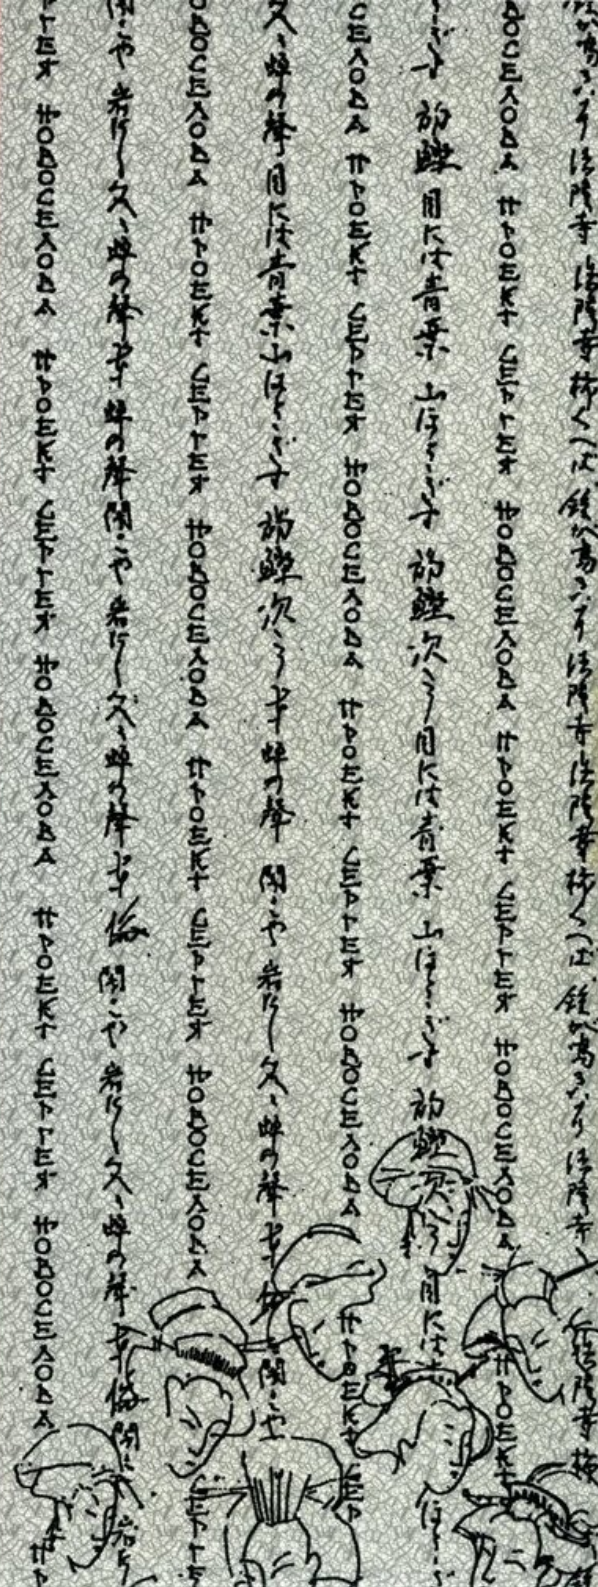 鐘が鳴るなり 法隆寺 法隆寺 柿くへば 鐘が鳴るなり 法隆寺 法隆寺 柿くへば 鐘が鳴るなり 法隆寺 法隆寺 柿
ВОСЕЛОВА ПРОЕКТ СЕРГЕЯ НОВОСЕЛОВА ПРОЕКТ СЕРГЕЯ НОВОСЕЛОВА ПРОЕКТ
初鰹 目には青葉 山ほととぎす 初鰹 目には青葉 山ほととぎす 初鰹 目には
СЕЛОВА ПРОЕКТ СЕРГЕЯ НОВОСЕЛОВА ПРОЕКТ СЕРГЕЯ НОВОСЕЛОВА ПРОЕКТ СЕР
蝉の聲 目には青葉 山ほととぎす 初鰹 蝉の聲 閑さや 岩にし 蝉の聲 閑さや
ВОСЕЛОВА ПРОЕКТ СЕРГЕЯ НОВОСЕЛОВА ПРОЕКТ СЕРГЕЯ НОВОСЕЛОВА СЕРГЕ
閑さや 岩にし 蝉の聲 蝉の聲 閑さや 岩にし 蝉の聲 閑さや 岩にし 蝉の聲 閑
РГЕЯ НОВОСЕЛОВА ПРОЕКТ СЕРГЕЯ НОВОСЕЛОВА ПРОЕКТ СЕРГЕЯ НОВОСЕЛОВА ПР